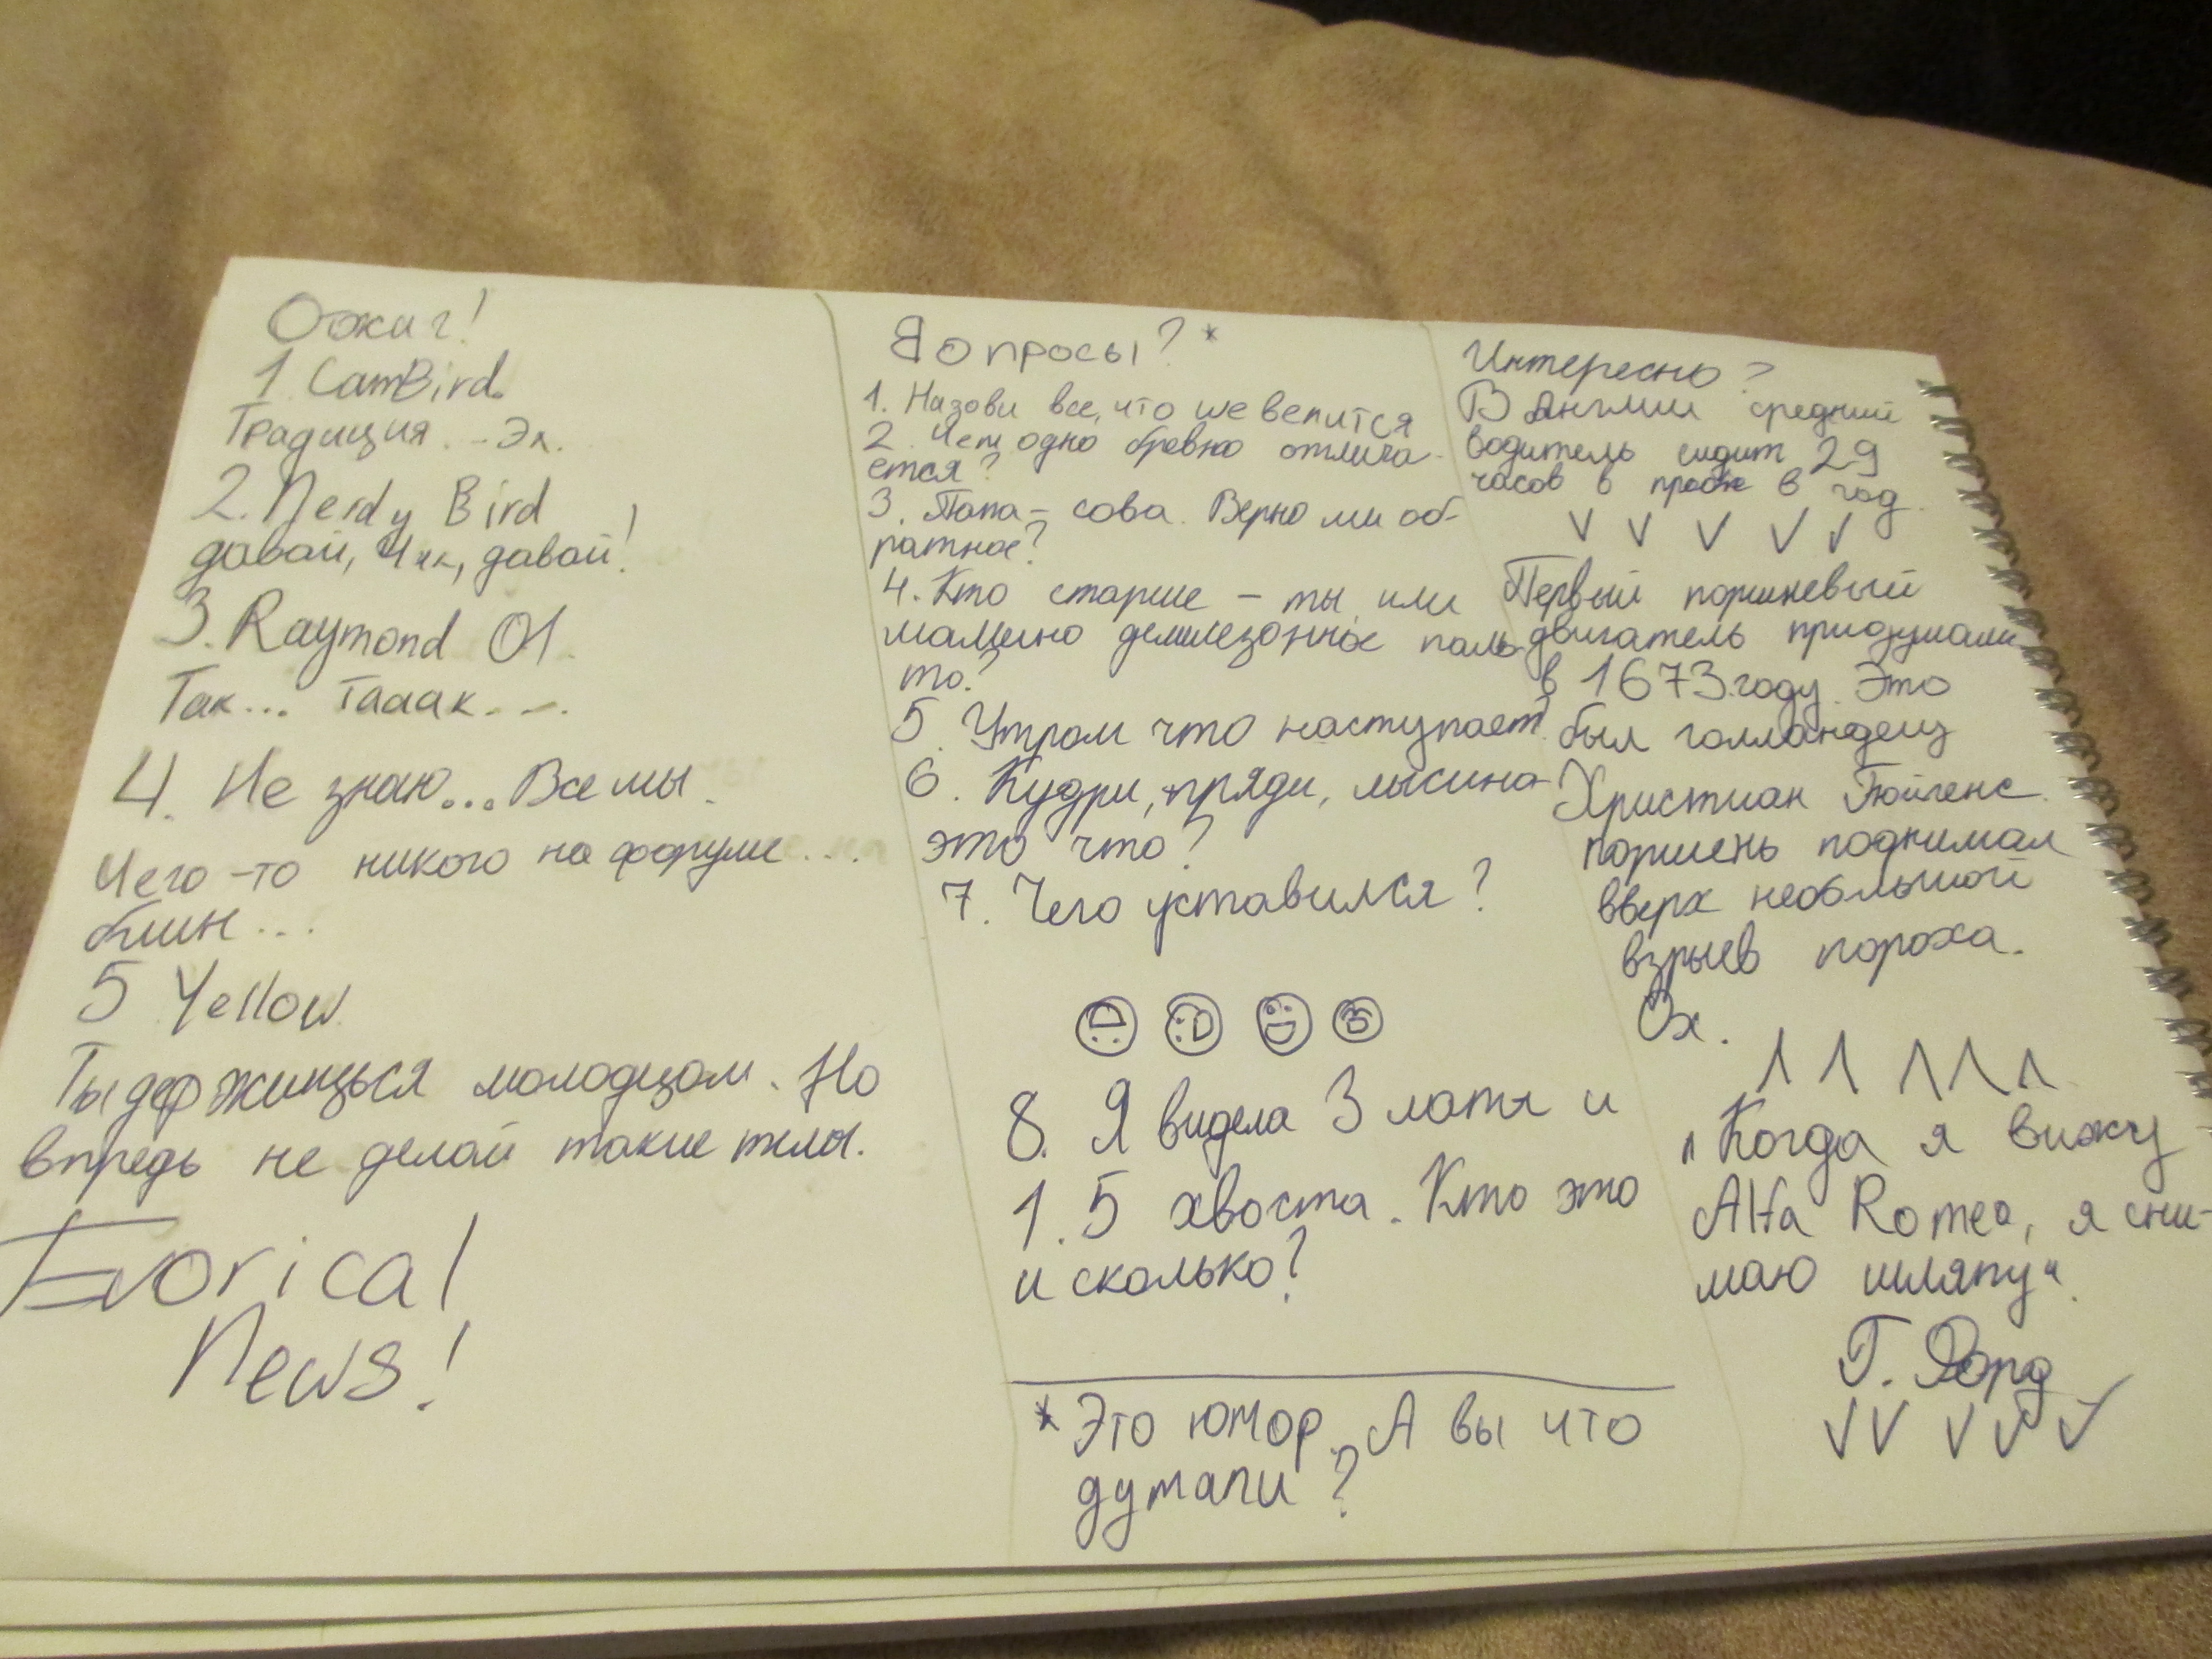 Отжиг!
1. CamBird.
Традиция. - Эл.
2. Nerdy Bird
давай, Чик, давай!
3. Raymond 01.
Так... Тааак...
4. Не знаю... Все мы.
Чего-то никого на форуме...
блин...
5 Yellow.
Ты держишься молодцом. Но
впредь не делай такие темы.
Evorical
News!
Вопросы?*
1. Назови все, что шевелится
2. Чем одно бревно отлича-
ется?
3. Папа - сова. Верно ли об-
ратное?
4. Кто старше - ты или
мамино демисезонное паль-
то?
5. Утром что наступает?
6. Кудри, пряди, лысина
это что?
7. Чего уставился?
8. Я видела 3 лапы и
1.5 хвоста. Кто это
и сколько?
* Это юмор. А вы что
думали?
Интересно?
В Англии средний
водитель сидит 29
часов в в год.
Первый поршневый
двигатель придумали
в 1673 году. Это
был голландец
Христиан Гюйгенс.
Поршень поднимал
вверх небольшой
взрыв пороха.
Ох.
"Когда я вижу
Alfa Romeo, я сни-
маю шляпу".
Г. Форд